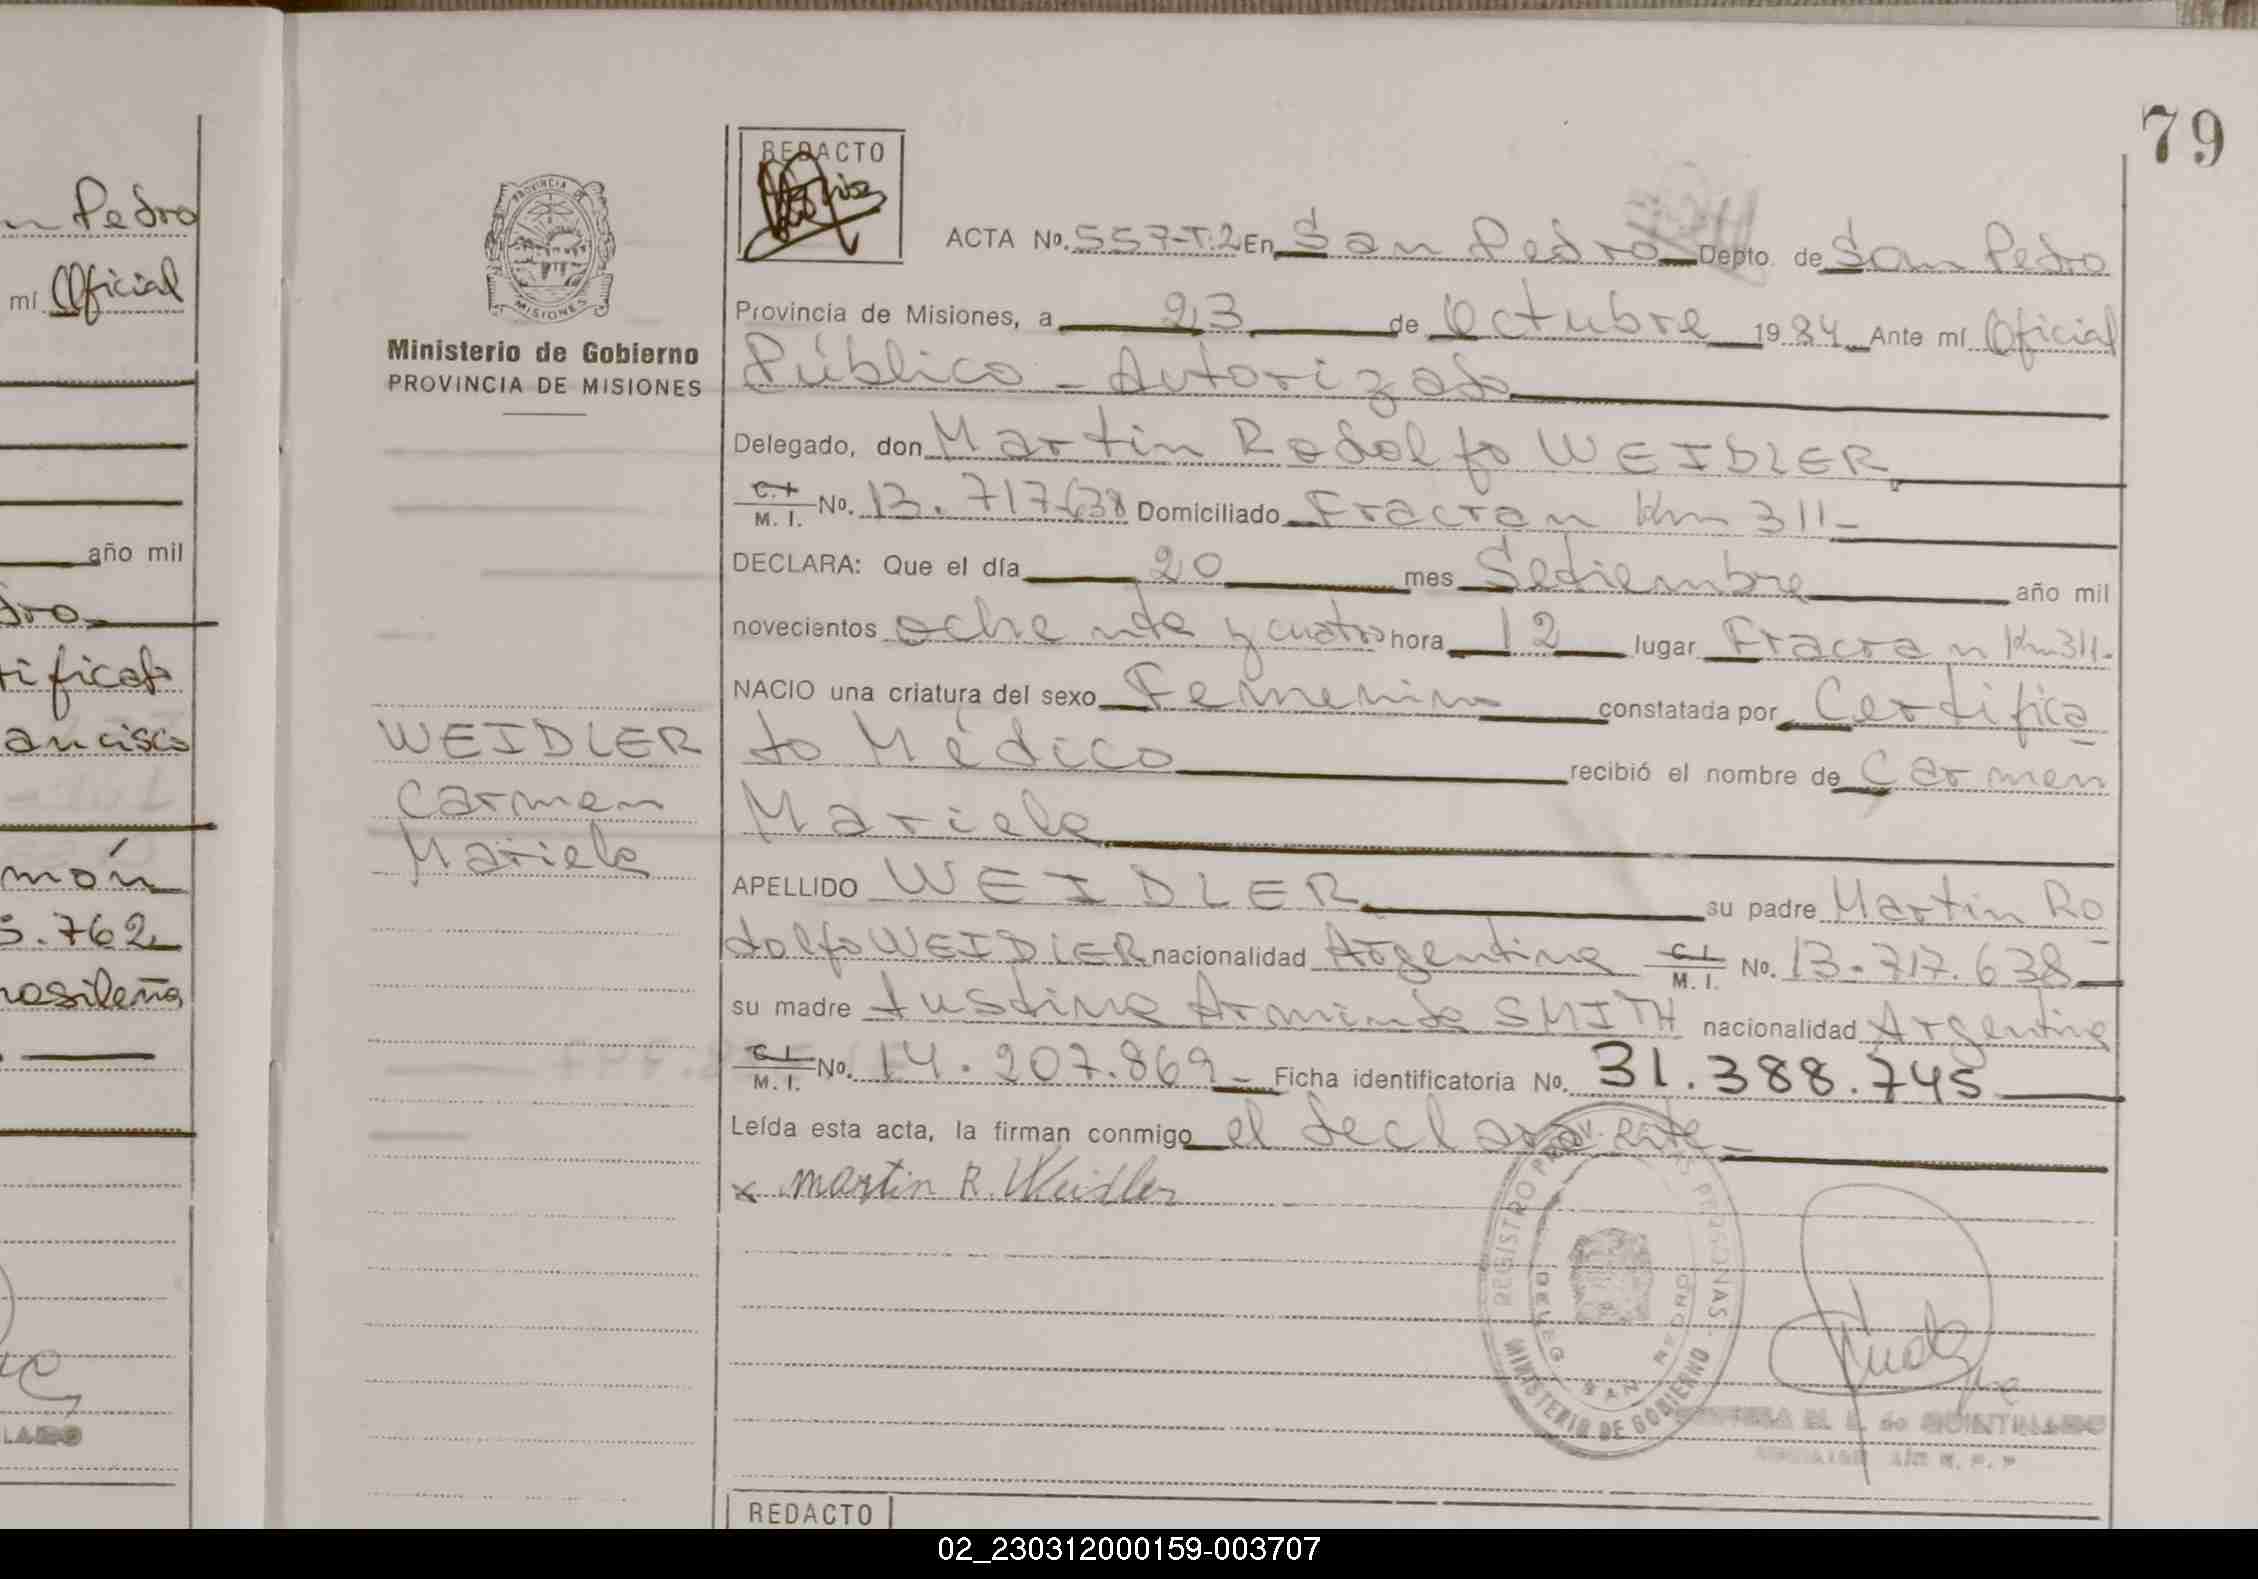 n Pedro
mí Oficial
año mil
dro
tificat
ancisco
món
5.762
rasileña
LLADO
79
PROVINCIA DE
MISIONES
Ministerio de Gobierno
PROVINCIA DE MISIONES
WEIDLER
Carmen
Mariela
REDACTO
ACTA No. 557-T.2 En San Pedro Depto. de San Pedro
Provincia de Misiones, a 23 de Octubre 1984 Ante mí Oficial
Público - Autorizado
Delegado, don Martin Rodolfo WEIDLER
C.I. M. I. No. 13.717.638 Domiciliado Fracran Km 311-
DECLARA: Que el día 20 mes Setiembre año mil
novecientos ochenta y cuatro hora 12 lugar Fracran Km 311.
NACIO una criatura del sexo Femenino constatada por Certifica
to Médico recibió el nombre de Carmen
Mariela
APELLIDO WEIDLER su padre Martin Ro
dolfo WEIDLER nacionalidad Argentina C.I. M. I. No. 13.717.638
su madre Justina Arminda SMITH nacionalidad Argentina
C.I. M. I. No. 14.207.869 - Ficha identificatoria No. 31.388.745
Leída esta acta, la firman conmigo el declarante
x martin R. Weidler
REGISTRO PROV. DE LAS PERSONAS
DELEG. SAN PEDRO
MINISTERIO DE GOBIERNO
de QUINTILLADO
REDACTO
02_230312000159-003707